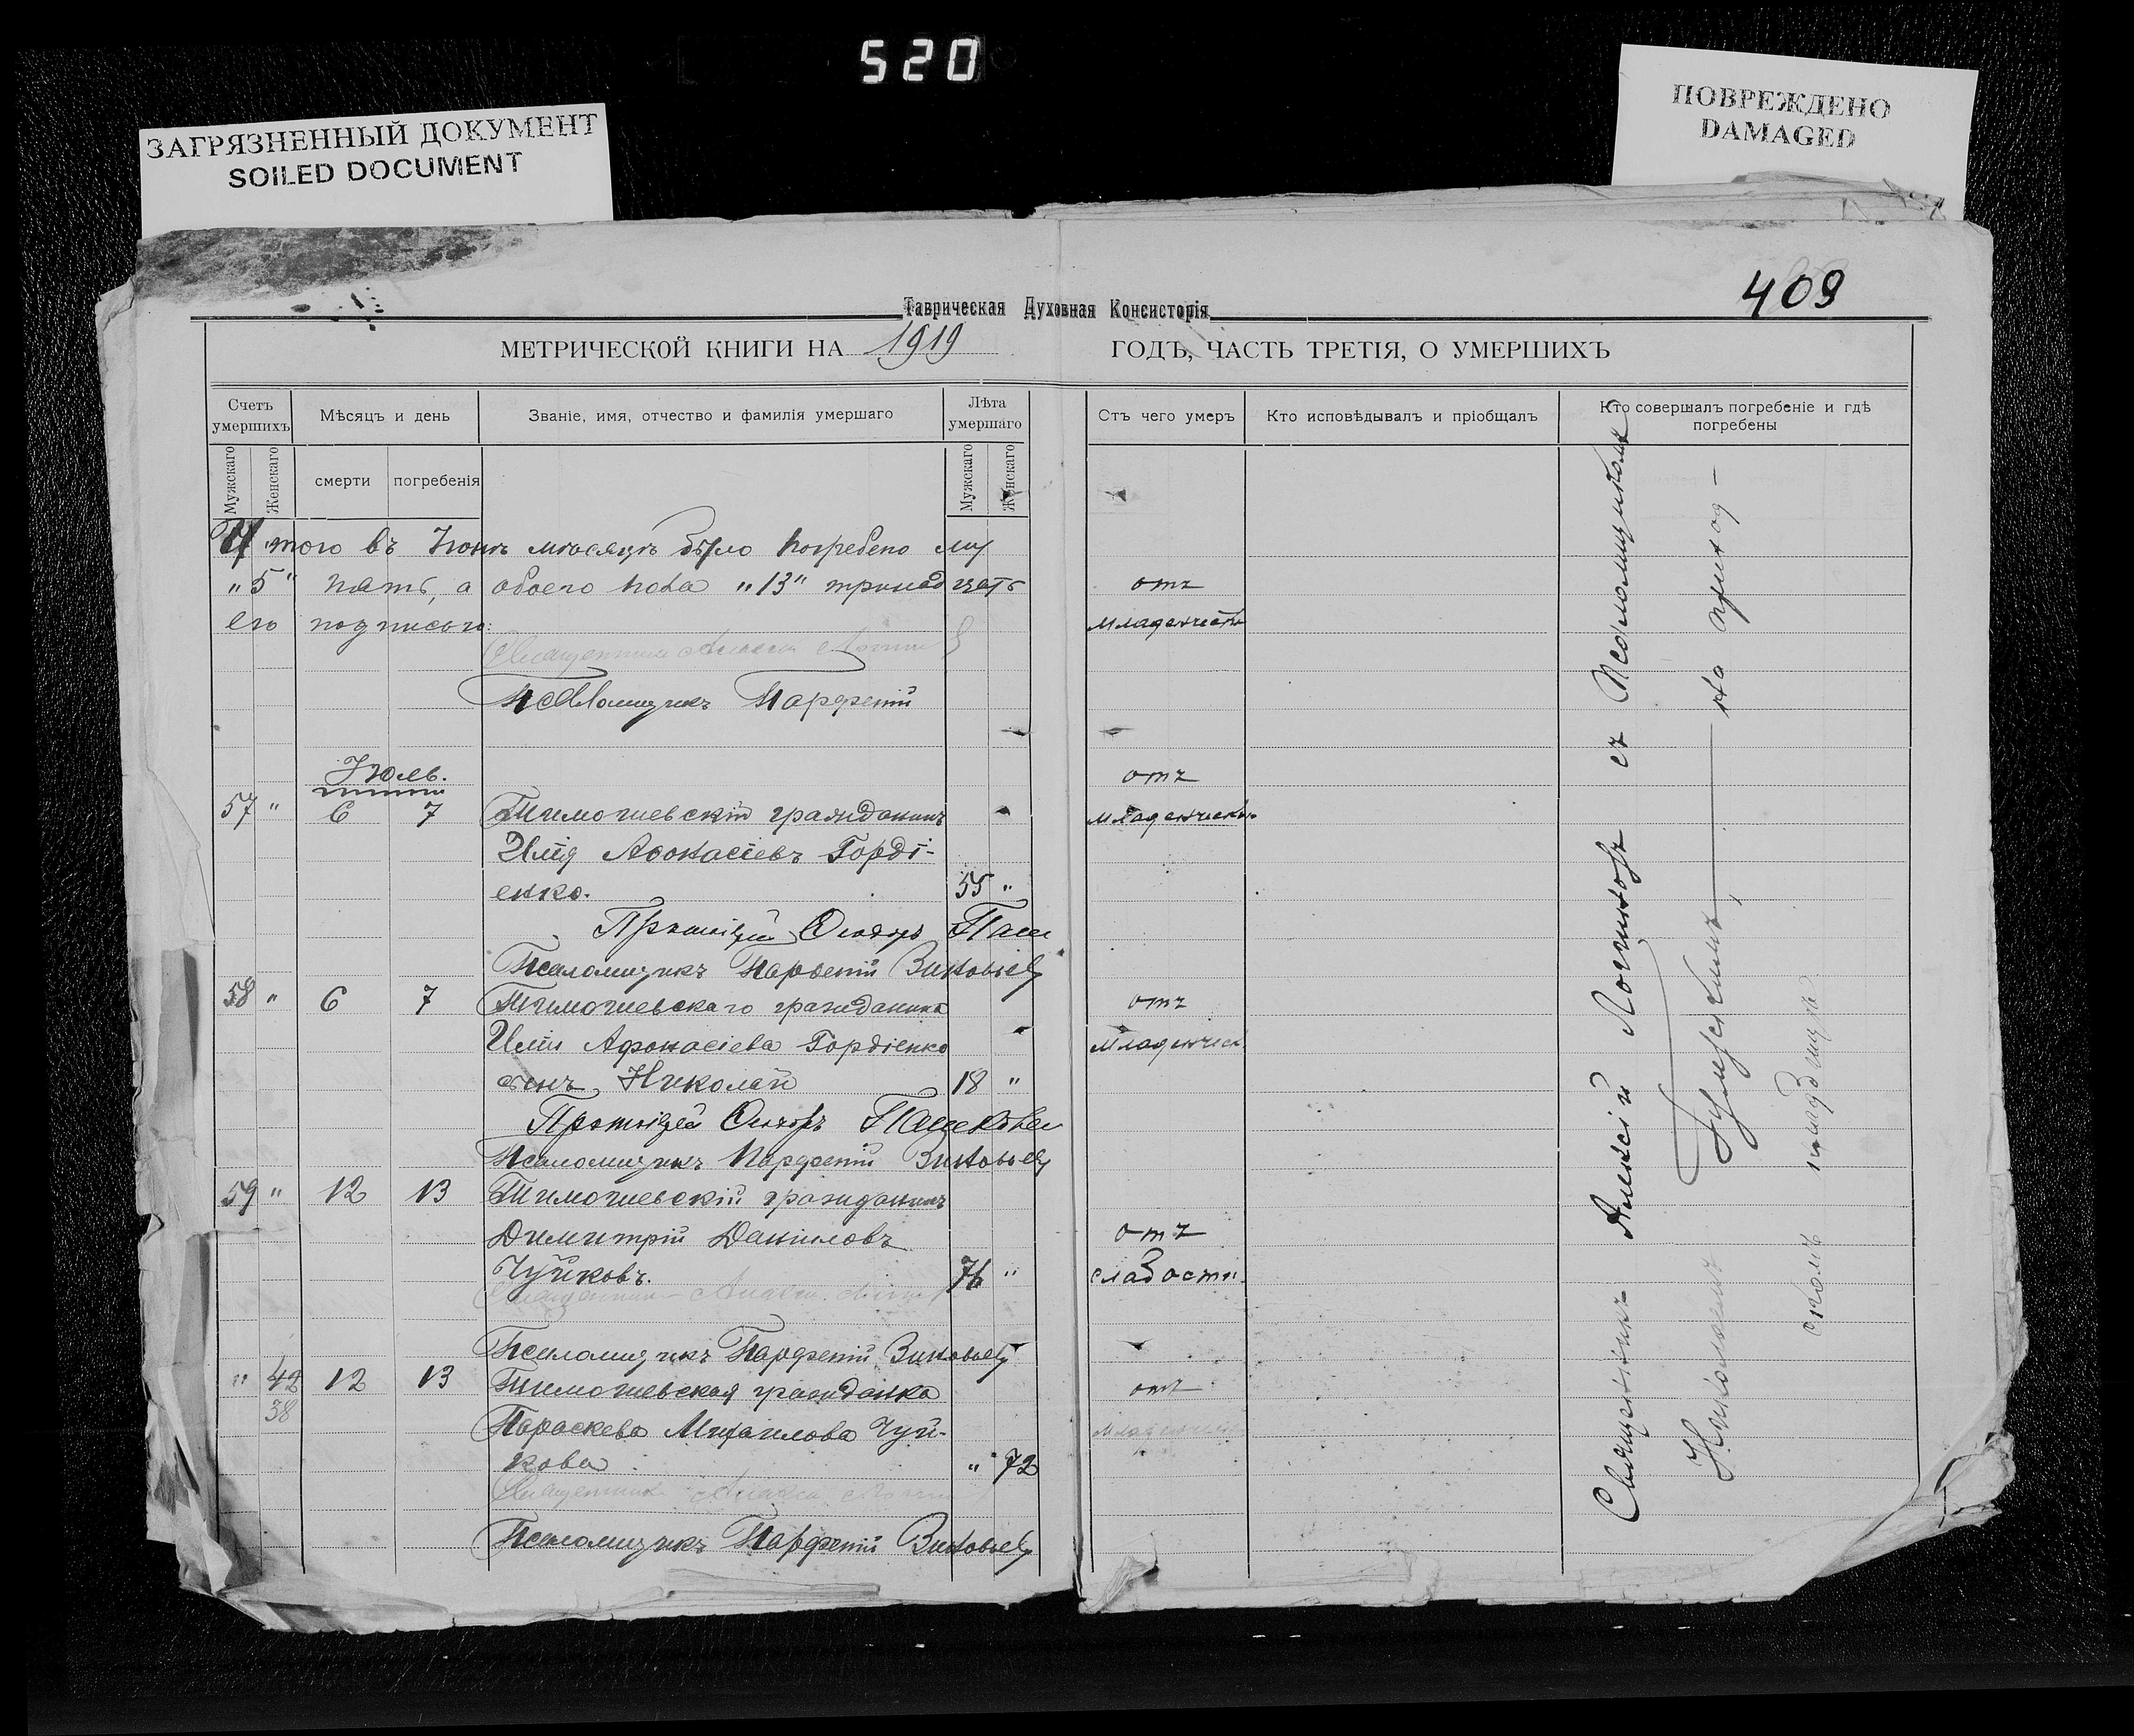 520
ЗАГРЯЗНЕННЫЙ ДОКУМЕНТ
SOILED DOCUMENT
ПОВРЕЖДЕНО
DAMAGED
409
Таврическая Духовная Консисторія
МЕТРИЧЕСКОЙ КНИГИ НА 1919 ГОДЪ, ЧАСТЬ ТРЕТІЯ, О УМЕРШИХЪ
Счетъ умершихъ
Мѣсяцъ и день
Званіе, имя, отчество и фамилія умершаго
Лѣта умершаго
Отъ чего умеръ
Кто исповѣдывалъ и пріобщалъ
Кто совершалъ погребеніе и гдѣ погребены
Мужскаго
Женскаго
смерти
погребенія
Мужскаго
Женскаго
Итого въ Іюнѣ мѣсяцѣ было погребено му
"5" пять, а обоего пола "13" тринадцать
отъ
его подписью:
Священникъ Алексій
Псаломщикъ Парфеній
Іюль.
отъ
57 " 6 7 Тимошевскій гражданинъ
Илія Аѳонасіевъ Горді-
енко. 55 "
Протоіерей Ѳеодоръ Паш
Псаломщикъ Парѳеній Зиновьев
58 " 6 7 Тимошевскаго гражданина отъ
Иліи Афонасіева Гордіенко
сынъ Николай 18 "
Протоіерей Ѳеодоръ
Псаломщикъ Парфеній Зиновьев
59 " 12 13 Тимошевскій гражданинъ
Димитрій Даніиловъ отъ
Чуйковъ. 76 " слабости
Священникъ Алексій
Псаломщикъ Парфеній Зиновьев
" 42 12 13 Тимошевская гражданка отъ
38
Параскева Михаилова Чуй-
кова " 72
Священникъ Алексій
Псаломщикъ Парфеній Зиновьев
Священникъ Алексій Логиновъ съ Псаломщикомъ
Николаемъ на приход-
скомъ кладбищѣ